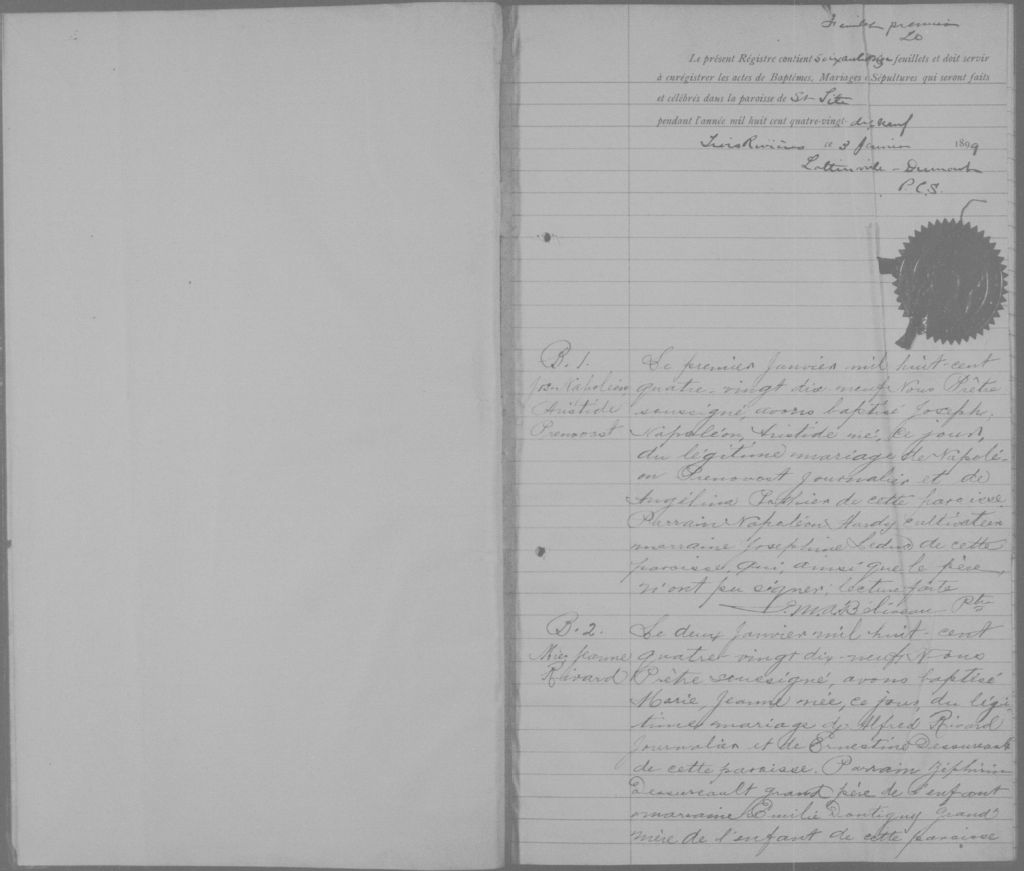 Feuillet premier
LD
Le présent Régistre contient soixante feuillets et doit servir
à enrégistrer les actes de Baptêmes, Mariages & Sépultures qui seront faits
et célébrés dans la paroisse de St Tite
pendant l'année mil huit cent quatre-vingt- dix neuf
Trois Rivières ce 3 janvier 1899
Lottinville - Dumont
P.C.S.
B. 1.
Jos. Napoléon
Aristide
Prenovost
Le premier Janvier mil huit-cent
quatre-vingt dix-neuf Nous Prêtre
soussigné, avons baptisé Joseph,
Napoléon, Aristide né, ce jour,
du légitime mariage de Napolé-
on Prenovost journalier et de
Angélina de cette paroisse
Parrain Napoléon Hardy cultivateur
marraine Josephine Leduc de cette
paroisse, qui, ainsi que le père,
n'ont pu signer; lecture faite
Béliveau Ptre
B. 2.
Mie Jeanne
Rivard
Le deux Janvier mil huit-cent
quatre-vingt dix-neuf Nous
Prêtre soussigné, avons baptisé
Marie, Jeanne née, ce jour, du légi-
time mariage de Alfred Rivard
journalier et de Ernestine Dessureault
de cette paroisse. Parrain Ziphirin
Dessureault grand père de l'enfant
marraine Emilie Dontigny Grand'
mère de l'enfant de cette paroisse